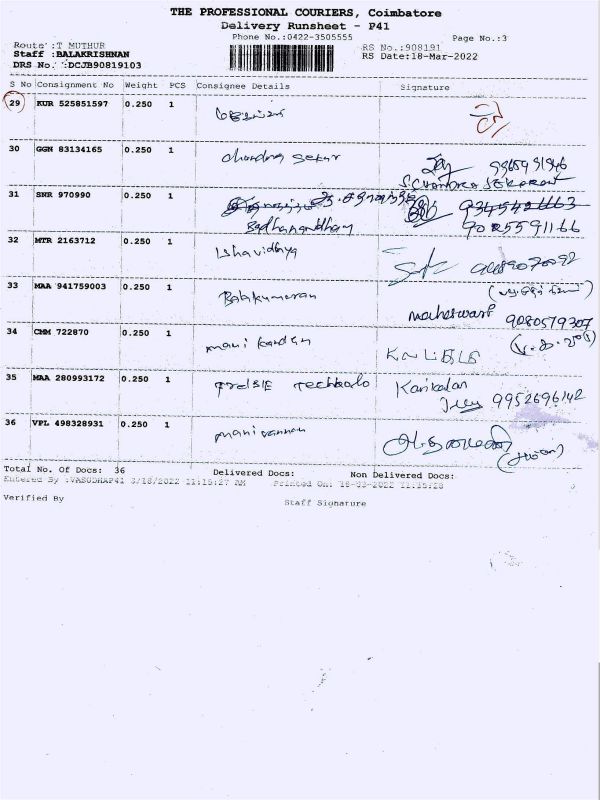 THE PROFESSIONAL COURIERS, Coimbatore
Delivery Runsheet - P41
Phone No.:0422-3505555
Page No.:3
Route :T MUTHUR
RS No.:908191
Staff :BALAKRISHNAN
RS Date:18-Mar-2022
DRS No. :DCJB90819103
S No Consignment No Weight PCS Consignee Details Signature
29 KUR 525851597 0.250 1
30 GGN 83134165 0.250 1 chandra sekar
S.CHANDRA SEKARAN
31 SNR 970990 0.250 1 9345421163
9025591166
32 MTR 2163712 0.250 1 Ishavidhya
33 MAA 941759003 0.250 1 Balakumaran
maheswari 9080579307
34 CHM 722870 0.250 1 mani kandan
35 MAA 280993172 0.250 1 Karikalan
9952696142
36 VPL 498328931 0.250 1 manivannan
Total No. Of Docs: 36 Delivered Docs: Non Delivered Docs:
Entered By :VASUDHAP41 3/18/2022 11:15:27 AM Printed On: 18-03-2022 11:15:28
Verified By Staff Signature